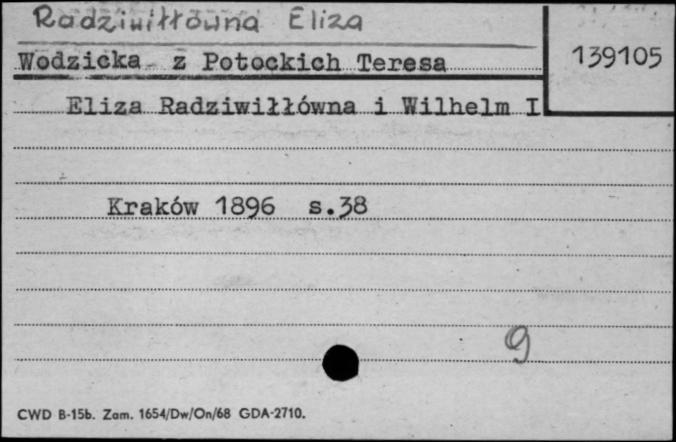 Radziwiłłówna Eliza
Wodzicka z Potockich Teresa
139105
Eliza Radziwiłłówna i Wilhelm I
Kraków 1896 s.38
9
CWD B-15b. Zam. 1654/Dw/On/68 GDA-2710.